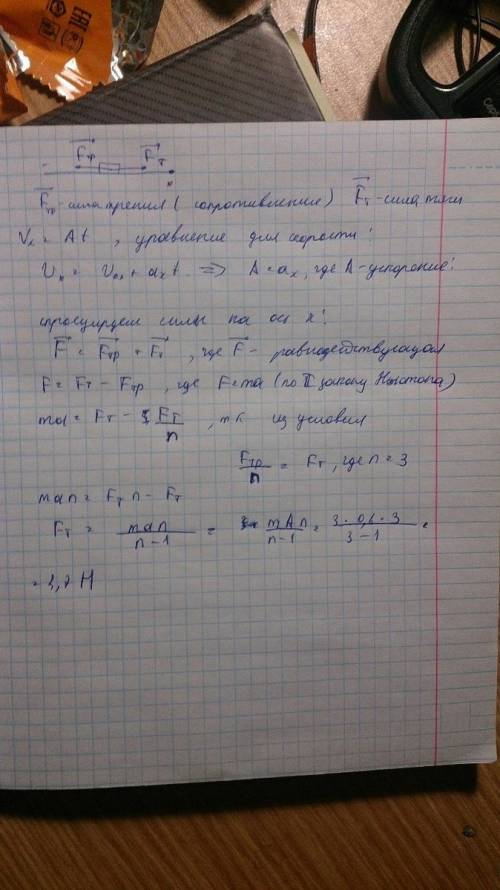 Fтр Fт
x
Fтр - сила трения (сопротивление) Fт - сила тяги
Vx = At , уравнение для скорости!
Vx = V0x + axt ⇒ A = ax, где A - ускорение!
спроецируем силы на ось x!
F = Fтр + Fт , где F - равнодействующая
F = Fт - Fтр , где F = ma (по II закону Ньютона)
ma = Fт - Fт/n , т.к из условия
Fтр/n = Fт , где n = 3
man = Fт n - Fт
Fт = man/n-1 = mAn/n-1 = 3·0,6·3/3-1 =
= 2,7 Н